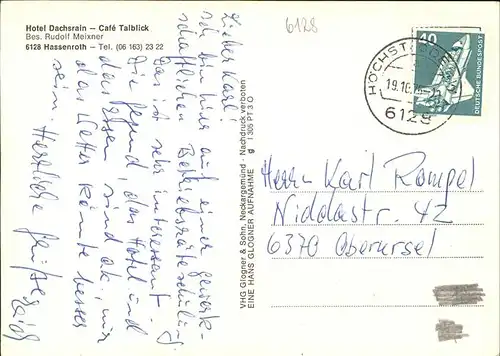 Hotel Dachsrain – Café Talblick
Bes. Rudolf Meixner
6128 Hassenroth – Tel. (06 163) 23 22
6128
Lieber Karl!
Ich bin hier auf einer gewerk-
schaftlichen Betriebsräteschulung.
Das ist sehr interessant.
Die Gegend, das Hotel und
das Essen sind ok, nur
das Wetter könnte besser
sein. Herzliche Grüße
VHG Glogner & Sohn, Neckargemünd · Nachdruck verboten
EINE HANS GLOGNER AUFNAHME g 1 305 P1 3 O
40
DEUTSCHE BUNDESPOST
6128
Herrn Karl Rompel
Niddastr. 42
6370 Oberursel